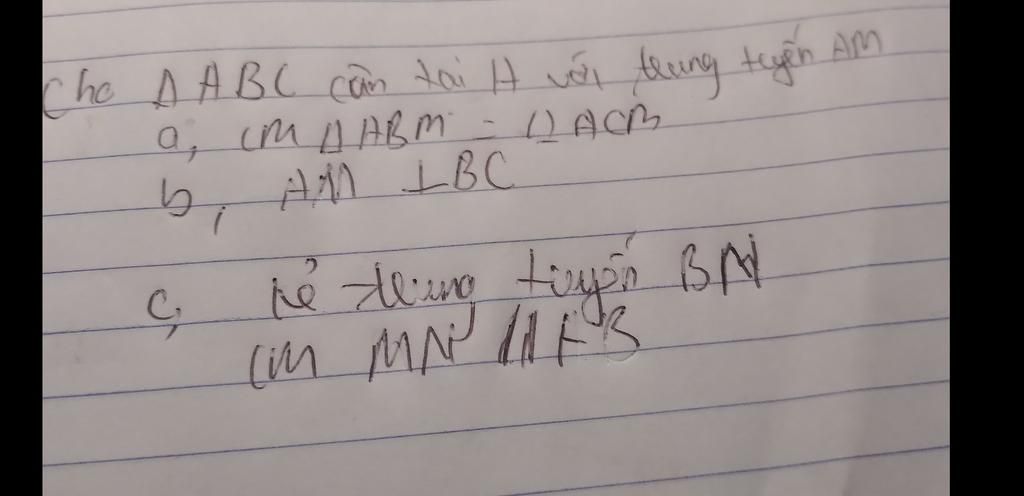 Cho Δ ABC cân tại A với trung tuyến AM
a, CM Δ ABM = Δ ACM
b, AM ⊥ BC
c, kẻ trung tuyến BN
CM MN // AB